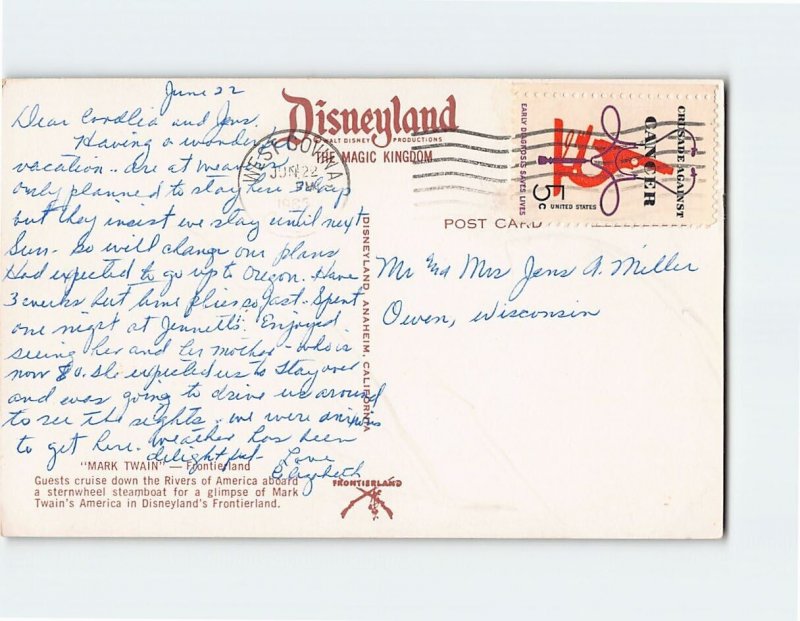 June 22
Dear Cordlia and Jens.
Having a wonder
vacation.. are at
only planned to stay here
but they insist we stay until next
Sun. So will change our plans
Had expected to go up to Oregon. Have
3 weeks but time flies so fast. Spent
one night at Jennett's. Enjoyed
seeing her and her mother - who is
now 80. She expected us to stay over
and was going to drive us around
to see the sights - we were anxious
to get here. Weather has been
delightful. Love
Elizabeth
Disneyland
WALT DISNEY PRODUCTIONS
THE MAGIC KINGDOM
WEST COVINA
JUN 22
PM
1965
EARLY DIAGNOSIS SAVES LIVES
CRUSADE AGAINST
CANCER
5c
UNITED STATES
POST CARD
DISNEYLAND, ANAHEIM, CALIFORNIA
Mr and Mrs Jens A. Miller
Owen, Wisconsin
"MARK TWAIN" — Frontierland
Guests cruise down the Rivers of America aboard
a sternwheel steamboat for a glimpse of Mark
Twain's America in Disneyland's Frontierland.
FRONTIERLAND